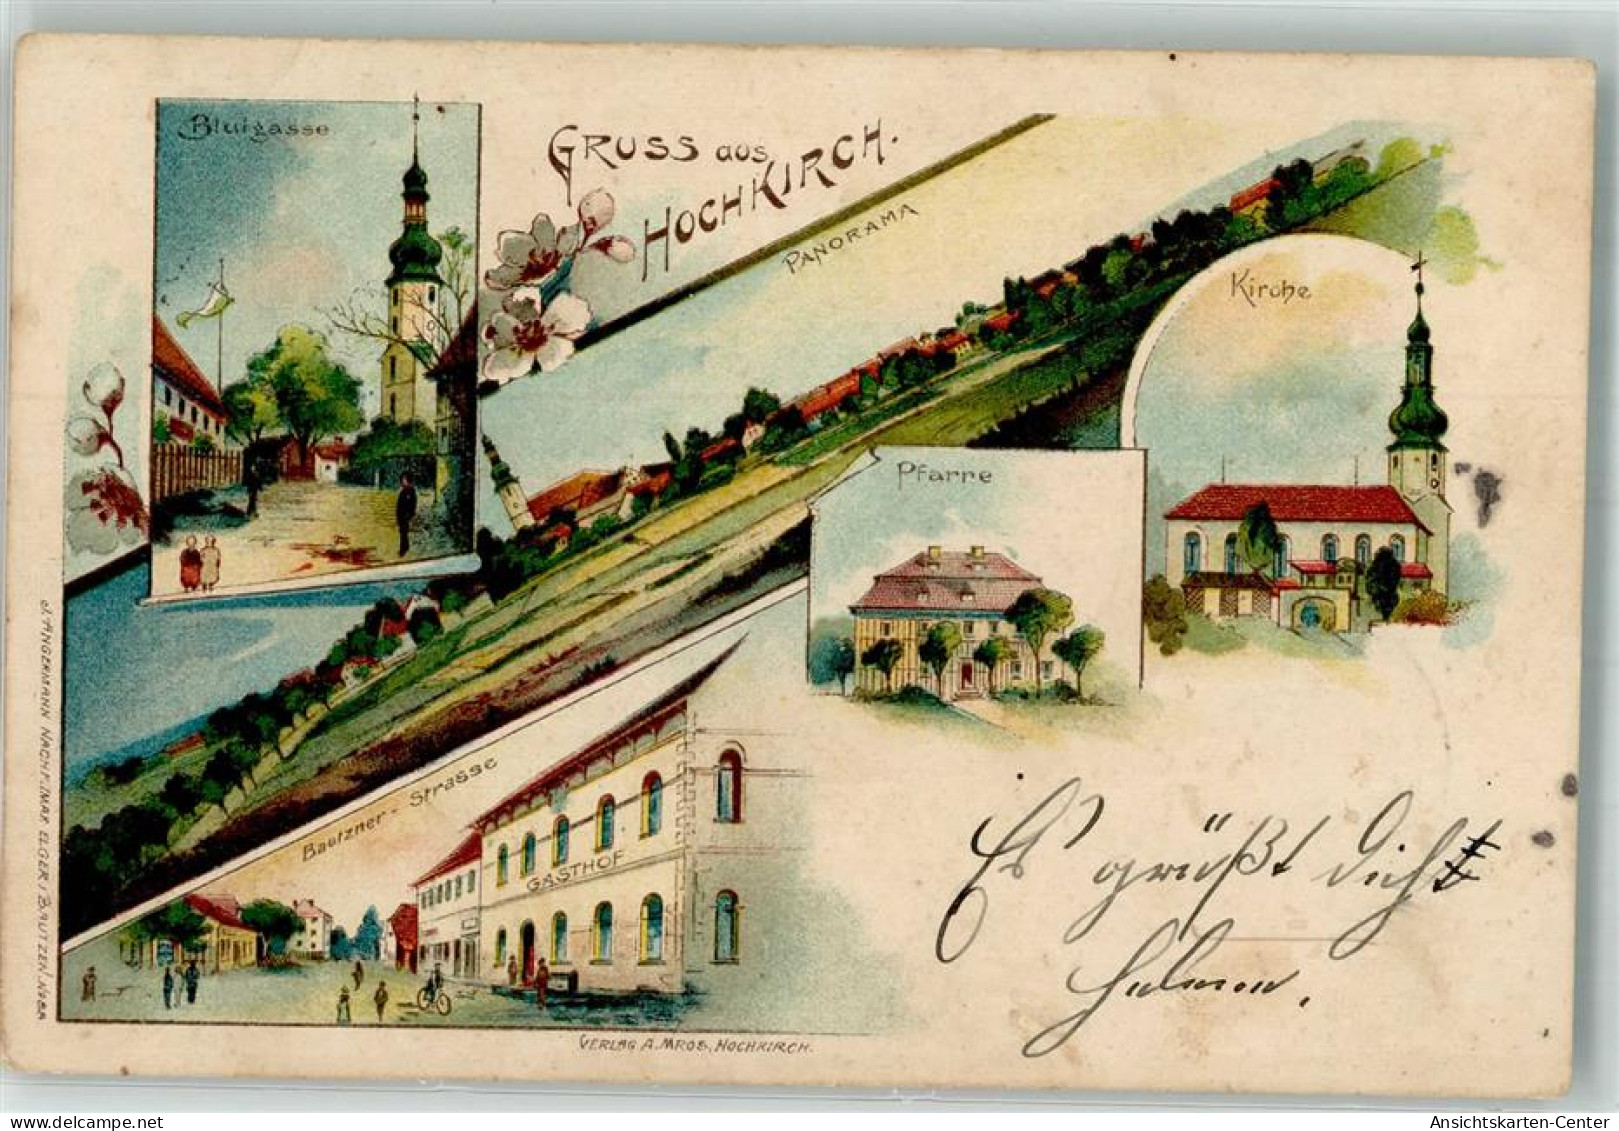 Blutgasse
GRUSS aus
HOCHKIRCH.
PANORAMA
Kirche
Pfarre
Bautzner-Strasse
GASTHOF
Es grüßt dich
VERLAG A. MROS, HOCHKIRCH.
J. ANGERMANN NACHF. (MAX ELGER) BAUTZEN.
AnsichtsKarten-Center